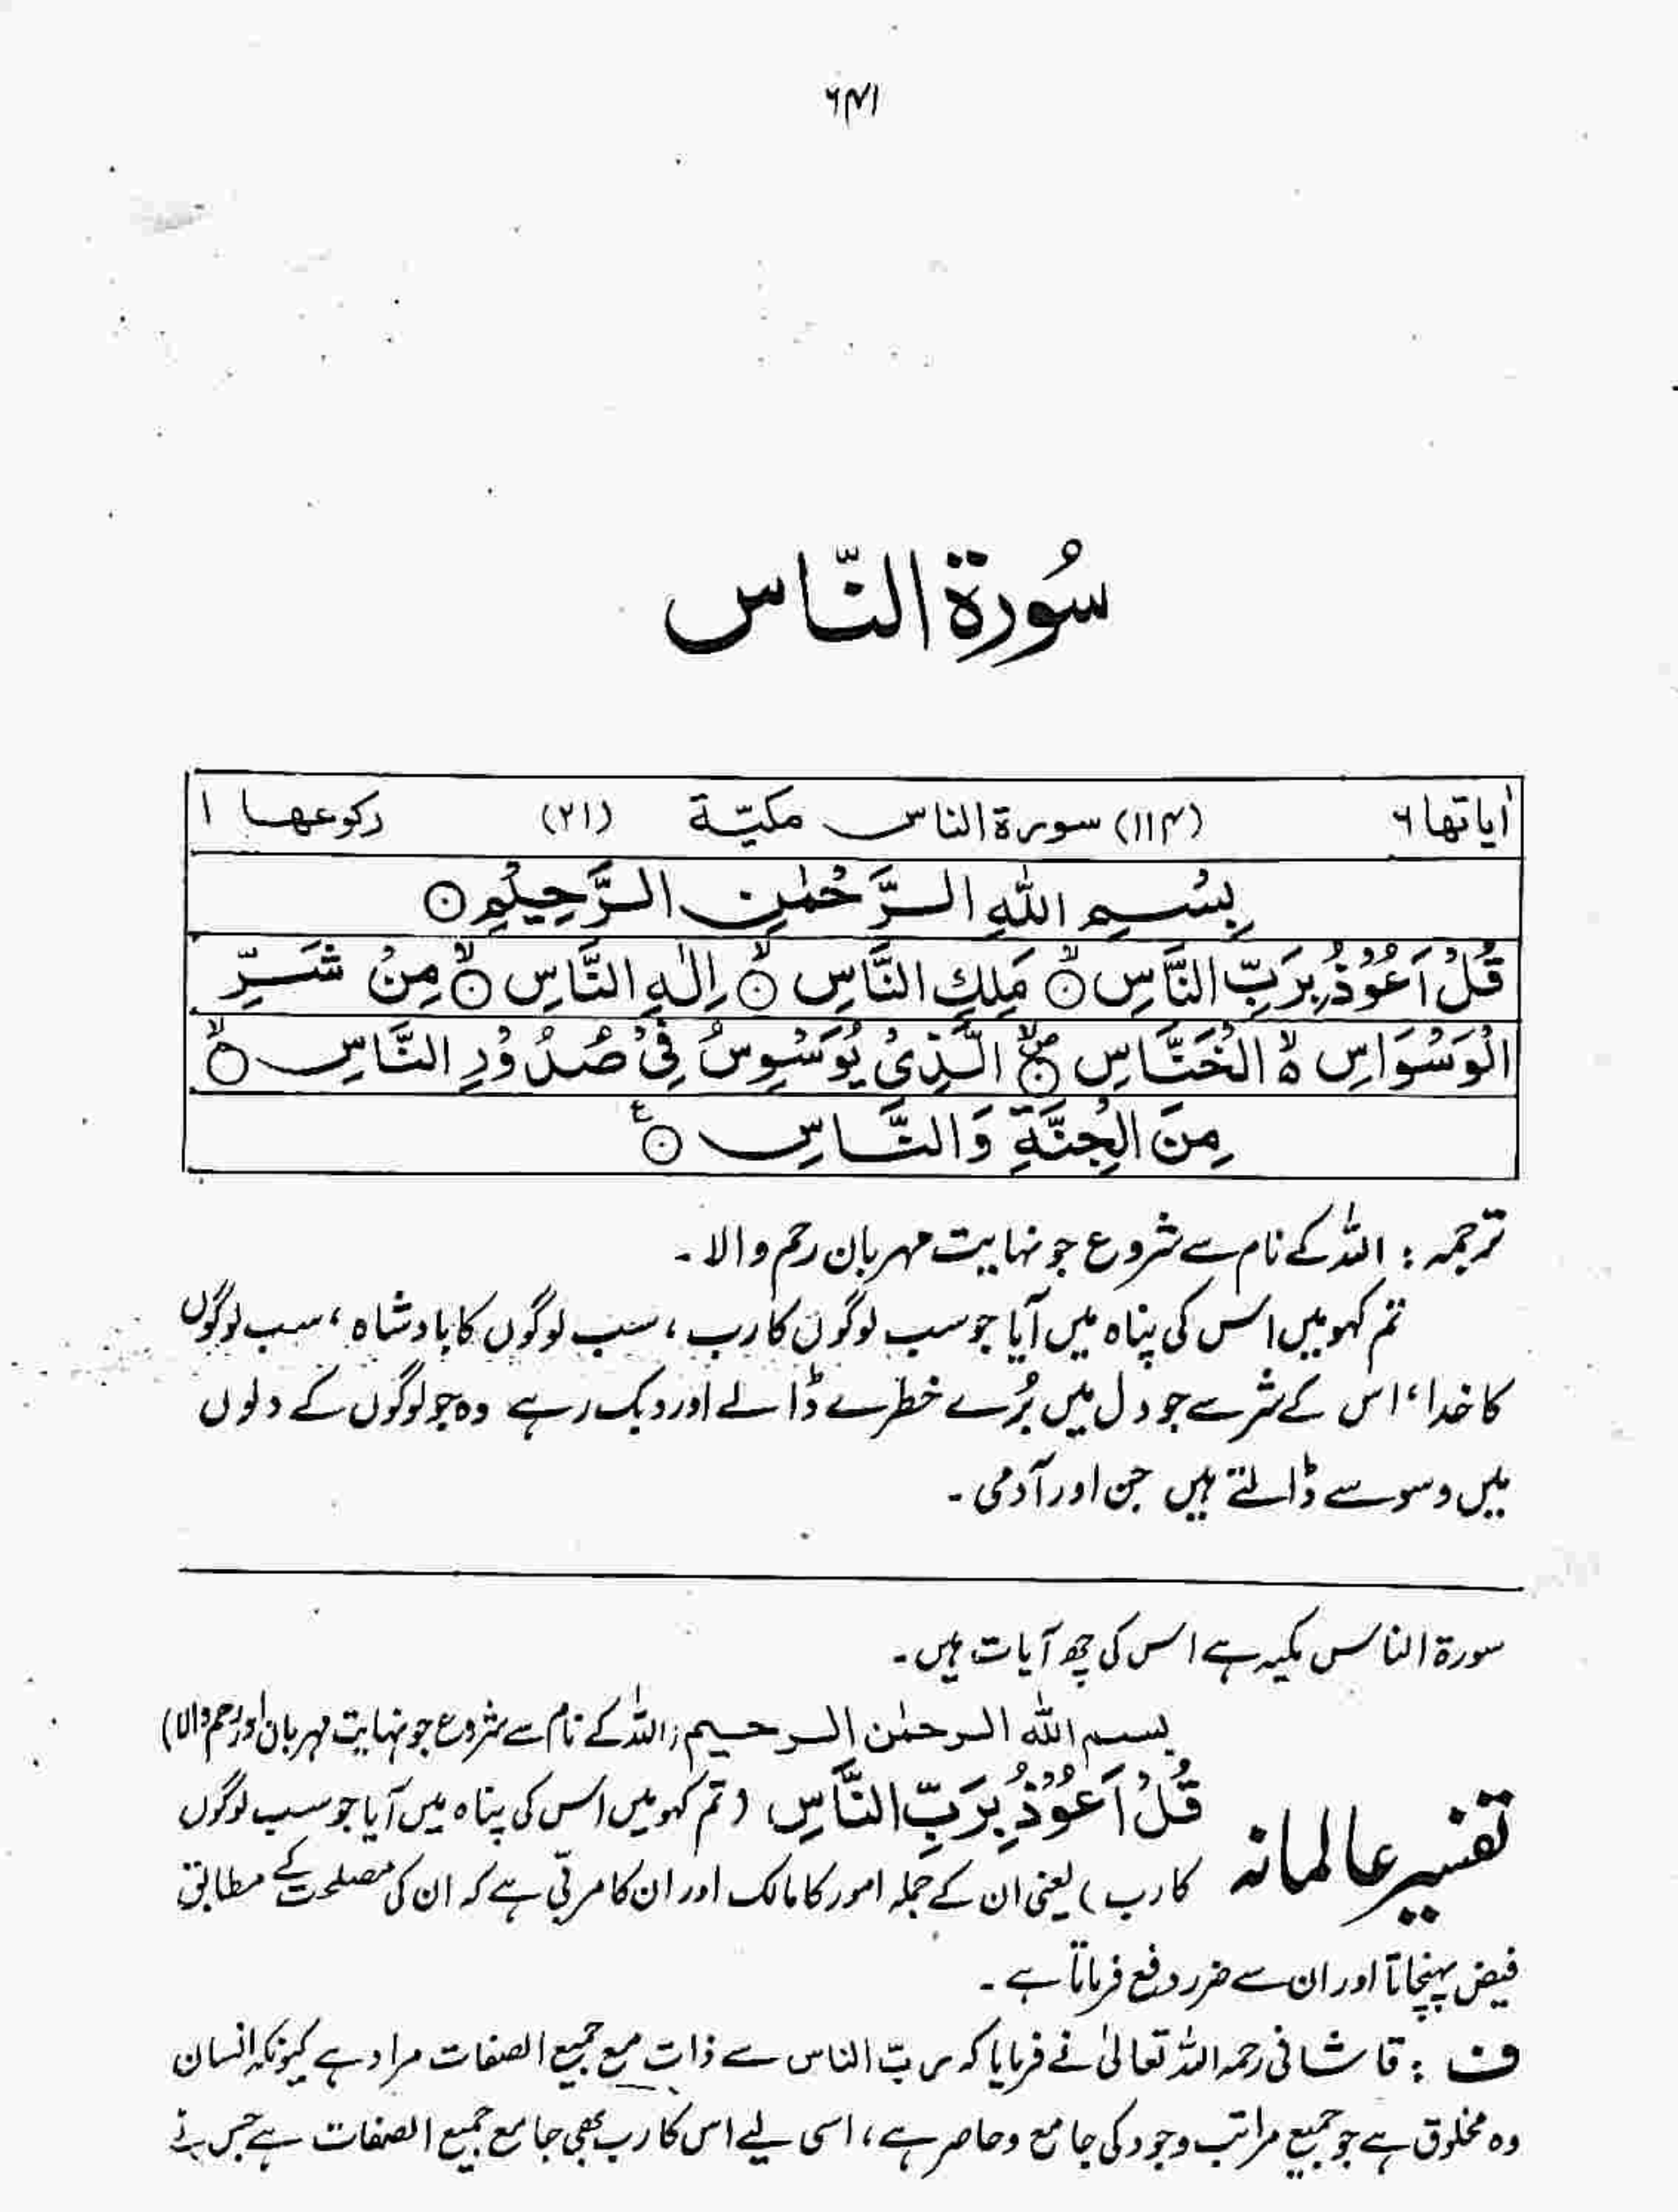 ۶۴۱
سُورة النّاس
اٰیاتها ۶ (۱۱۴) سورة الناس مکیّة (۲۱) رکوعها ۱
بِسْمِ اللهِ الرَّحْمٰنِ الرَّحِيْمِ ۝
قُلْ اَعُوْذُ بِرَبِّ النَّاسِ ۝ۙ مَلِكِ النَّاسِ ۝ۙ اِلٰهِ النَّاسِ ۝ۙ مِنْ شَرِّ
الْوَسْوَاسِ ۵ۙ الْخَنَّاسِ ۝۪ۙ الَّذِىْ يُوَسْوِسُ فِىْ صُدُوْرِ النَّاسِ ۝ۙ
مِنَ الْجِنَّةِ وَالنَّاسِ ۝ع
ترجمہ : اللہ کے نام سے شروع جو نہایت مہربان رحم والا۔
تم کہو میں اس کی پناہ میں آیا جو سب لوگوں کا رب، سب لوگوں کا بادشاہ، سب لوگوں
کا خدا، اس کے شر سے جو دل میں بُرے خطرے ڈالے اور دبک رہے وہ جو لوگوں کے دلوں
میں وسوسے ڈالتے ہیں جن اور آدمی۔
سورۃ الناس مکیہ ہے اس کی چھ آیات ہیں۔
بسم الله الرحمٰن الرحیم (اللہ کے نام سے شروع جو نہایت مہربان اور رحم والا)
تفسیر عالمانہ قُلْ اَعُوْذُ بِرَبِّ النَّاسِ (تم کہو میں اس کی پناہ میں آیا جو سب لوگوں
کا رب) یعنی ان کے جملہ امور کا مالک اور ان کا مربّی ہے کہ ان کی مصلحت کے مطابق
فیض پہنچاتا اور ان سے ضرر دفع فرماتا ہے۔
ف : قاشانی رحمہ اللہ تعالیٰ نے فرمایا کہ ربّ الناس سے ذات مع جمیع الصفات مراد ہے کیونکہ انسان
وہ مخلوق ہے جو جمیع مراتب وجود کی جامع وحاصر ہے، اسی لیے اس کا رب بھی جامع جمیع الصفات ہے جس نے